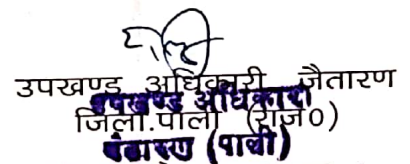 उपखण्ड अधिकारी जैतारण
उपखण्ड अधिकारी
जिला.पाली (राज०)
जैतारण (पाली)